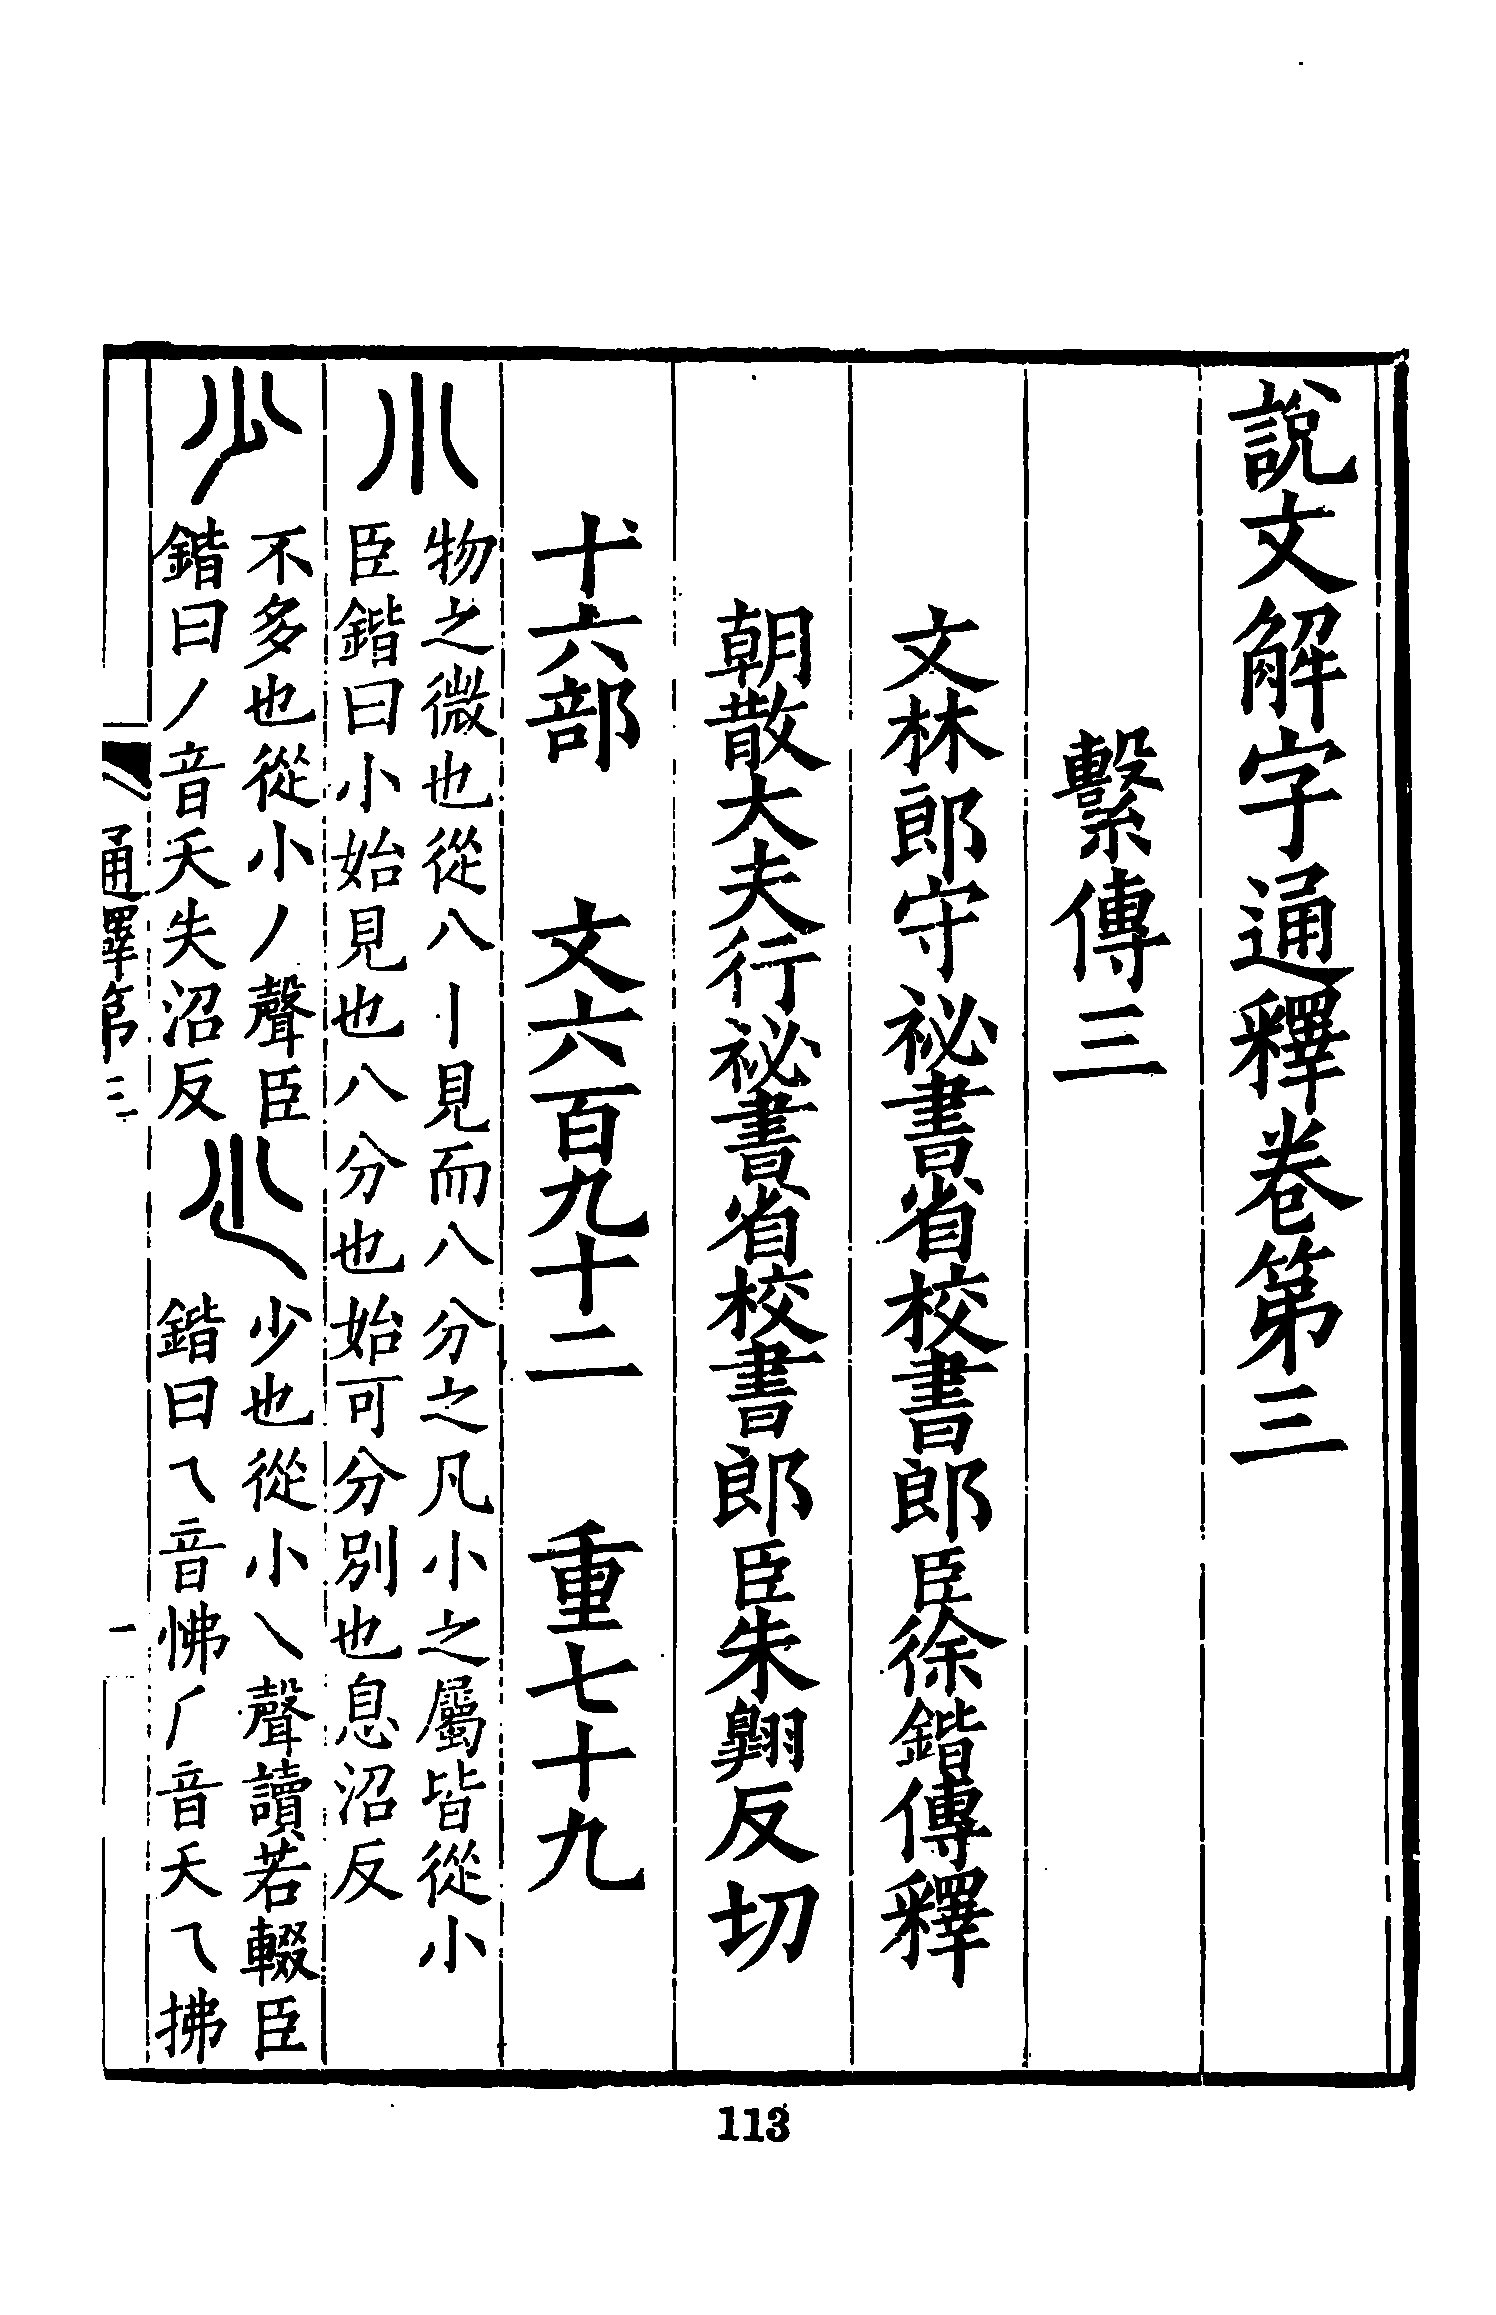 說文解字通釋卷第三
繫傳三
文林郎守祕書省校書郎臣徐鍇傳釋
朝散大夫行祕書省校書郎臣朱翺反切
十六部　文六百九十二　重七十九
小
物之微也從八丨見而八分之凡小之屬皆從小
臣鍇曰小始見也八分也始可分別也息沼反
少
不多也從小丿聲臣
鍇曰丿音夭失沼反
𡮐
少也從小乀聲讀若輟臣
鍇曰乀音怫丿音夭乀拂
通釋第三
一
113